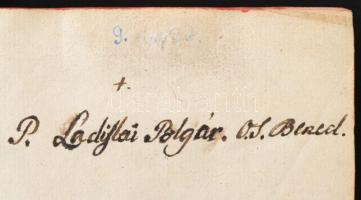 9.
+.
P. Ladislai Polgár. O.S. Bened.